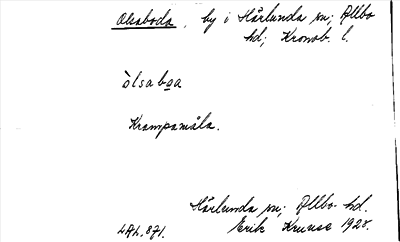 Olsaboda, by i Härlunda sn; Allbo
hd; Kronob. l.
òlsabωa
Krampamåla.
Härlunda sn; Allbo hd.
LAL. 871. Erik Kruuse 1928.